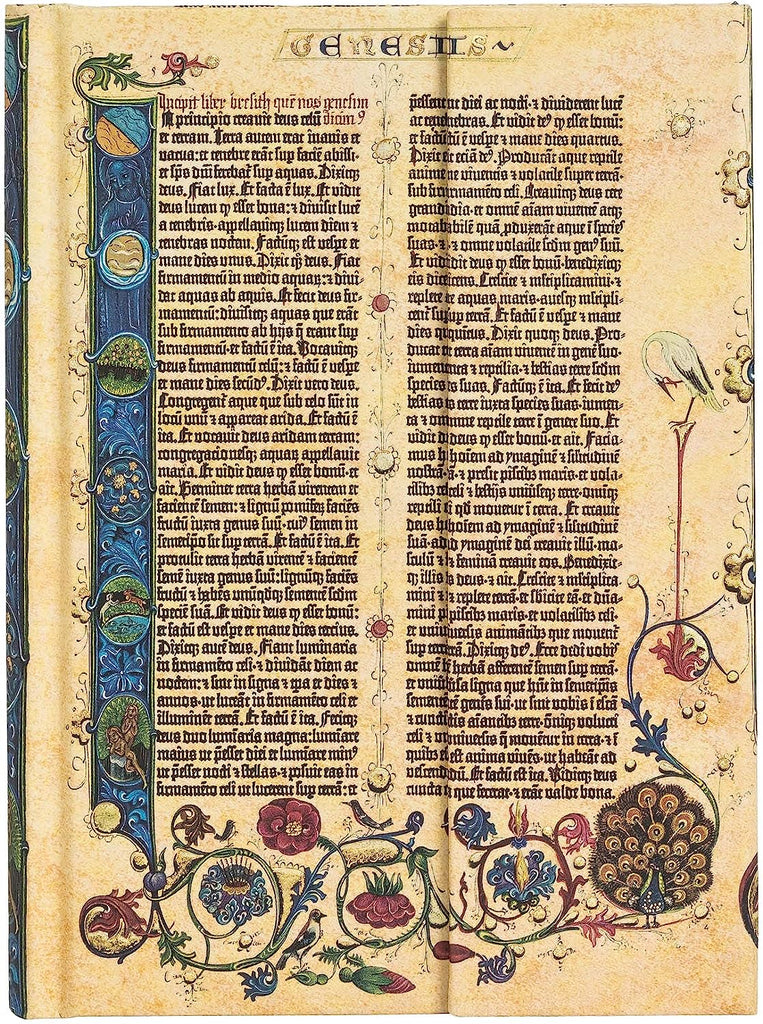 GENESIIS
Incipit liber bresith quē nos genesim
In principio creavit deus celū dicim9
et terram. Terra autem erat inanis et
vacua: et tenebre erāt sup faciē abissi:
et spūs dūi ferebatur sup aquas. Dixitq;
deus. Fiat lux. Et facta ē lux. Et vidit
deus lucem q esset bona: et divisit lucē
a tenebris: appellavitq; lucem diem et
tenebras noctem. Factūq; est vespe et
mane dies unus. Dixit q; deus. Fiat
firmamentū in medio aquar: et divi-
dat aquas ab aquis. Et fecit deus fir-
mamentū: divisitq; aquas que erāt
sub firmamento ab hijs q erant sup
firmamentū: et factū ē ita. Vocavitq;
deus firmamentū celū: et factū ē vespe
et mane dies secūd9. Dixit vero deus.
Congregent aque que sub celo sūt in
locū unū et appareat arida. Et factū ē
ita. Et vocavit deus aridam terram:
congregationesq; aquar appellavit
maria. Et vidit deus q esset bonū: et
ait. Germinet terra herbā virentem et
facientē semen: et lignū pomifer faciēs
fructū iuxta genus suū: cui9 semen in
semetipso sit sup terrā. Et factū ē ita. Et
protulit terra herbā virentē et facientē
semē iuxta genus suū: lignūq; faciēs
fructū et habēs unūqdq; sementē scdm
speciē suā. Et vidit deus q esset bonū:
et factū est vespe et mane dies tercius.
Dixitq; autē deus. Fiant luminaria
in firmamēto celi: et dividāt diem ac
noctem: et sint in signa et tpa et dies et
annos: ut luceāt in firmamēto celi et
illuminēt terrā. Et factū ē ita. Fecitq;
deus duo lumīaria magna: lumīare
maius ut pesset diei et lumīare min9
ut pesset nocti et stellas: et posuit eas in
firmamēto celi ut lucerent sup terrā: et
pessent diei ac nocti: et dividerent lucē
ac tenebras. Et vidit de9 q esset bonū:
et factū ē vespe et mane dies quartus.
Dixit eciā de9. Producāt aque reptile
anime viventis et volatile super terrā
sub firmamēto celi. Creavitq; deus cete
grandia et omnē aīam viventē atq;
motabilē quā pduxerāt aque ī species
suas: et omne volatile scdm gen9 suū.
Et vidit deus q esset bonū: benedixitq;
eis dicens. Crescite et mltiplicamini: et
replete aquas maris: avesq; mltipli-
cent sup terrā. Et factū ē vespe et mane
dies quintus. Dixit quoq; deus. Pro-
ducat terra aīam viventē in genē suo:
iumenta et reptilia: et bestias terre scdm
species suas. Factūq; ē ita. Et fecit de9
bestias terre iuxta species suas: iumen-
ta et omne reptile terre ī genere suo. Et
vidit deus q esset bonū: et ait. Facia-
mus hoīem ad ymaginē et silitudinē
nostrā: et presit piscib9 maris: et vola-
tilib9 celi et bestijs univseq; terre: omniq;
reptili qd movetur ī terra. Et creavit
deus hoīem ad ymaginē et silitudinē
suā: ad ymaginē dei creavit illū: ma-
sculū et feminā creavit eos. Benedixit-
q; illis deus: et ait. Crescite et mltiplica-
mini et replete terrā: et sbicite eā: et dña-
mini piscibus maris: et volatilib9 celi:
et universis animātib9 que movent
sup terrā. Dixitq; de9. Ecce dedi vobis
omnē herbā afferentē semen sup terrā:
et universa ligna que hūt in semetipis
sementē genis sui: ut sint vobis ī escā
et cunctis aīantib9 terre: omniq; volucri
celi et universis q moventur in terra: et ī
quib9 est anima vivēs: ut habeāt ad
vescendū. Et factū est ita. Viditq; deus
cuncta que fecerat: et erāt valde bona.